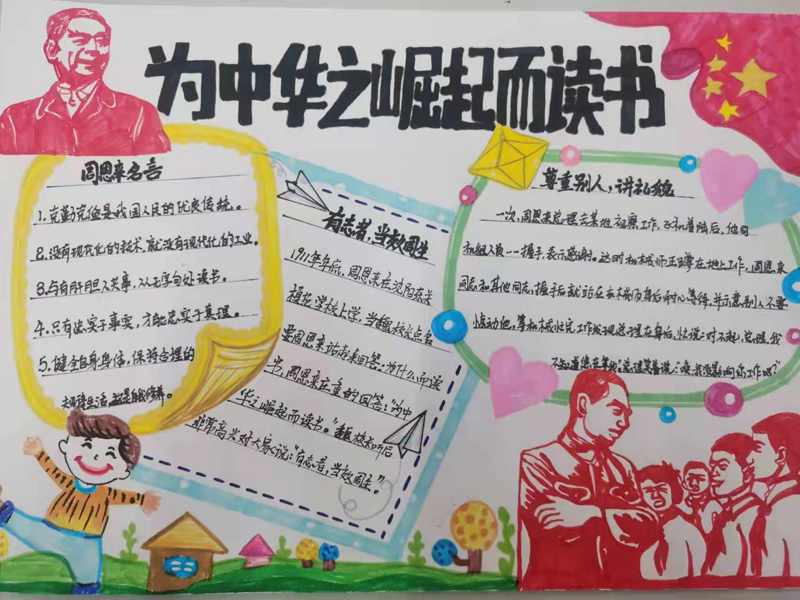 为中华之崛起而读书
周恩来名言
1.克勤克俭是我国人民的优良传统。
2.没有现代化的技术,就没有现代化的工业。
3.与有肝胆人共事,从无字句处读书。
4.只有忠实于事实,才能忠实于真理。
5.健全自身身体,保持合理的
规律生活,这是自我修养。
有志者,当效周生
1911年年底,周恩来在沈阳东关
模范学校上学,当魏校长点名
要周恩来站起来回答:为什么而读
书,周恩来庄重的回答:“为中
华之崛起而读书。”魏校长听后
非常高兴对大家说:“有志者,当效周生。”
尊重别人,讲礼貌
一次,周恩来总理去某地视察工作,飞机着陆后,他同
机组人员一一握手,表示感谢。这时机械师正蹲在地上工作,周恩来
同志和其他同志握手后就站在机械师身后耐心等待,并示意别人不要
惊动他,等机械忙完工作发现总理在身后,忙说:对不起,总理,我
不知道您在等我。总理笑着说:“噢,我没影响你工作吧?”